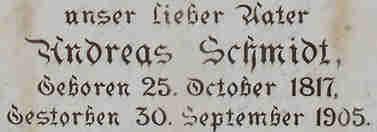 unser lieber Vater
Andreas Schmidt,
Geboren 25. October 1817,
Gestorben 30. September 1905.